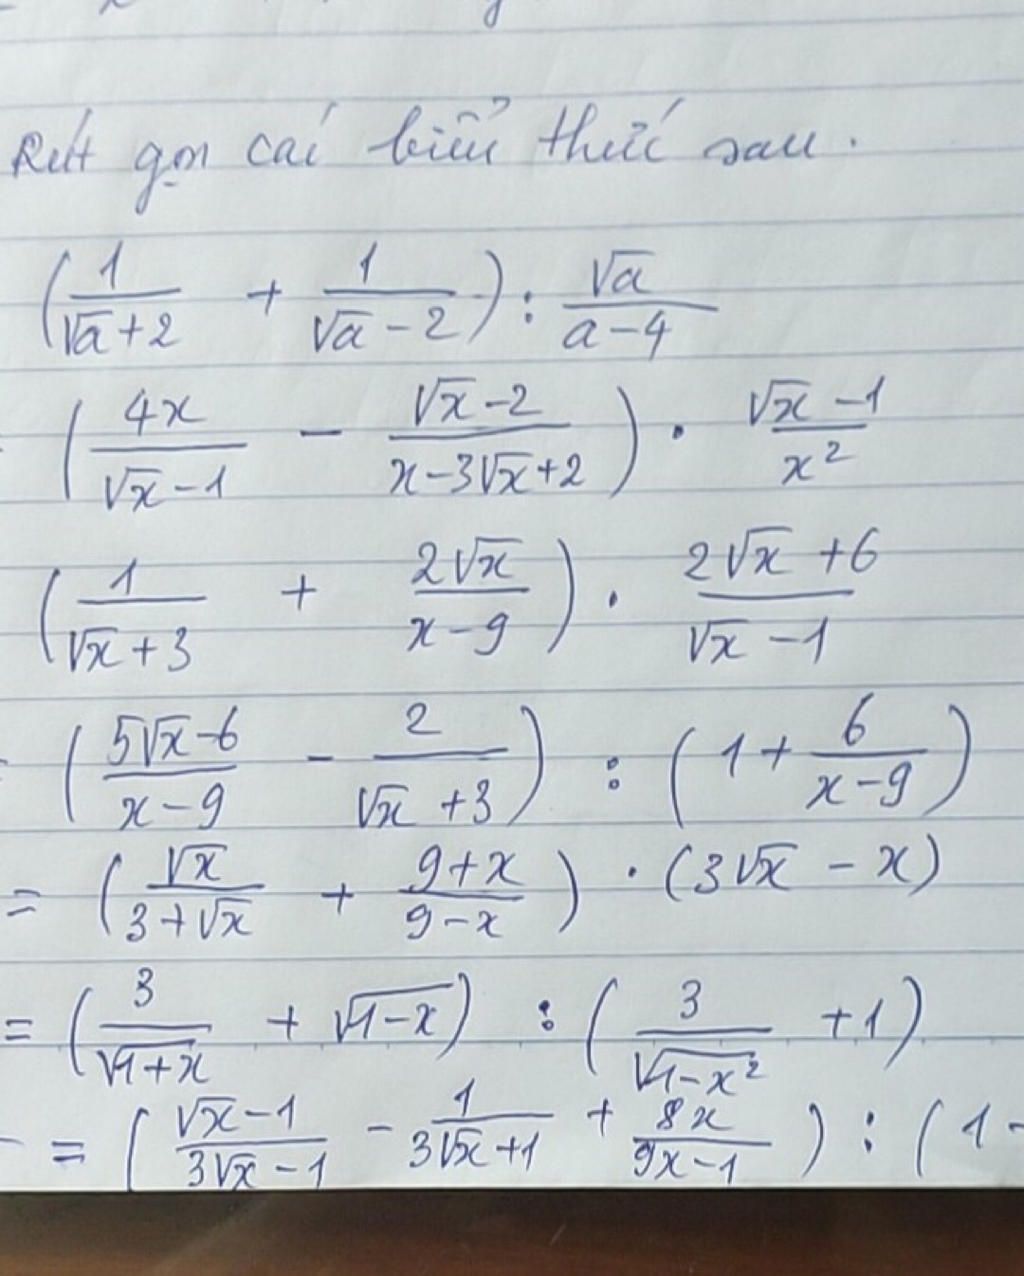 Rút gọn cái biểu thức sau.
(1/(√a+2) + 1/(√a-2)) : √a/(a-4)
(4x/(√x-1) - (√x-2)/(x-3√x+2)) · (√x-1)/x²
(1/(√x+3) + 2√x/(x-9)) · (2√x+6)/(√x-1)
((5√x-6)/(x-9) - 2/(√x+3)) : (1+6/(x-9))
= (√x/(3+√x) + (9+x)/(9-x)) · (3√x-x)
= (3/√(1+x) + √(1-x)) : (3/√(1-x²) + 1)
= ((√x-1)/(3√x-1) - 1/(3√x+1) + 8x/(9x-1)) : (1-